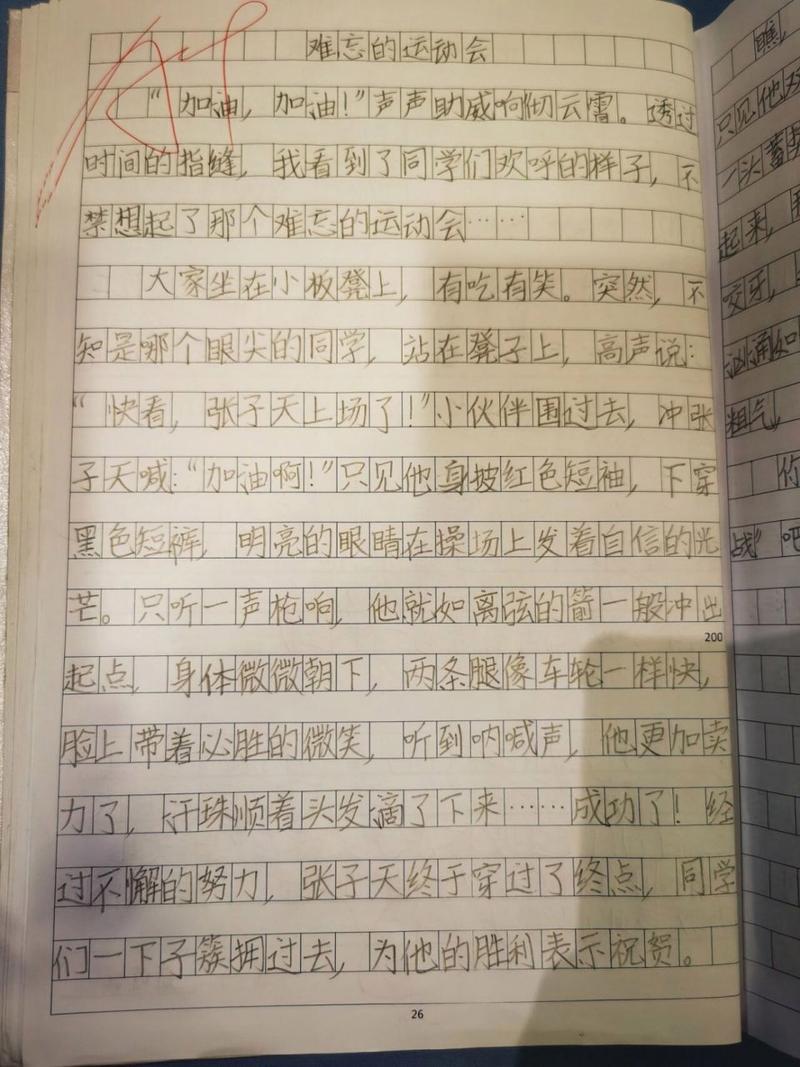 难忘的运动会
“加油，加油！”声声助威响彻云霄。透过
时间的指缝，我看到了同学们欢呼的样子，不
禁想起了那个难忘的运动会……
大家坐在小板凳上，有吃有笑。突然，不
知是哪个眼尖的同学，站在凳子上，高声说：
“快看，张子天上场了！”小伙伴围过去，冲张
子天喊：“加油啊！”只见他身披红色短袖，下穿
黑色短裤，明亮的眼睛在操场上发着自信的光
芒。只听一声枪响，他就如离弦的箭一般冲出
200
起点，身体微微朝下，两条腿像车轮一样快，
脸上带着必胜的微笑，听到呐喊声，他更加卖
力了，汗珠顺着头发滴了下来……成功了！经
过不懈的努力，张子天终于穿过了终点，同学
们一下子簇拥过去，为他的胜利表示祝贺。
26
瞧，
只见他双
一头蓄
起来，
咬牙，
汹涌如
粗气，
你
战”吧